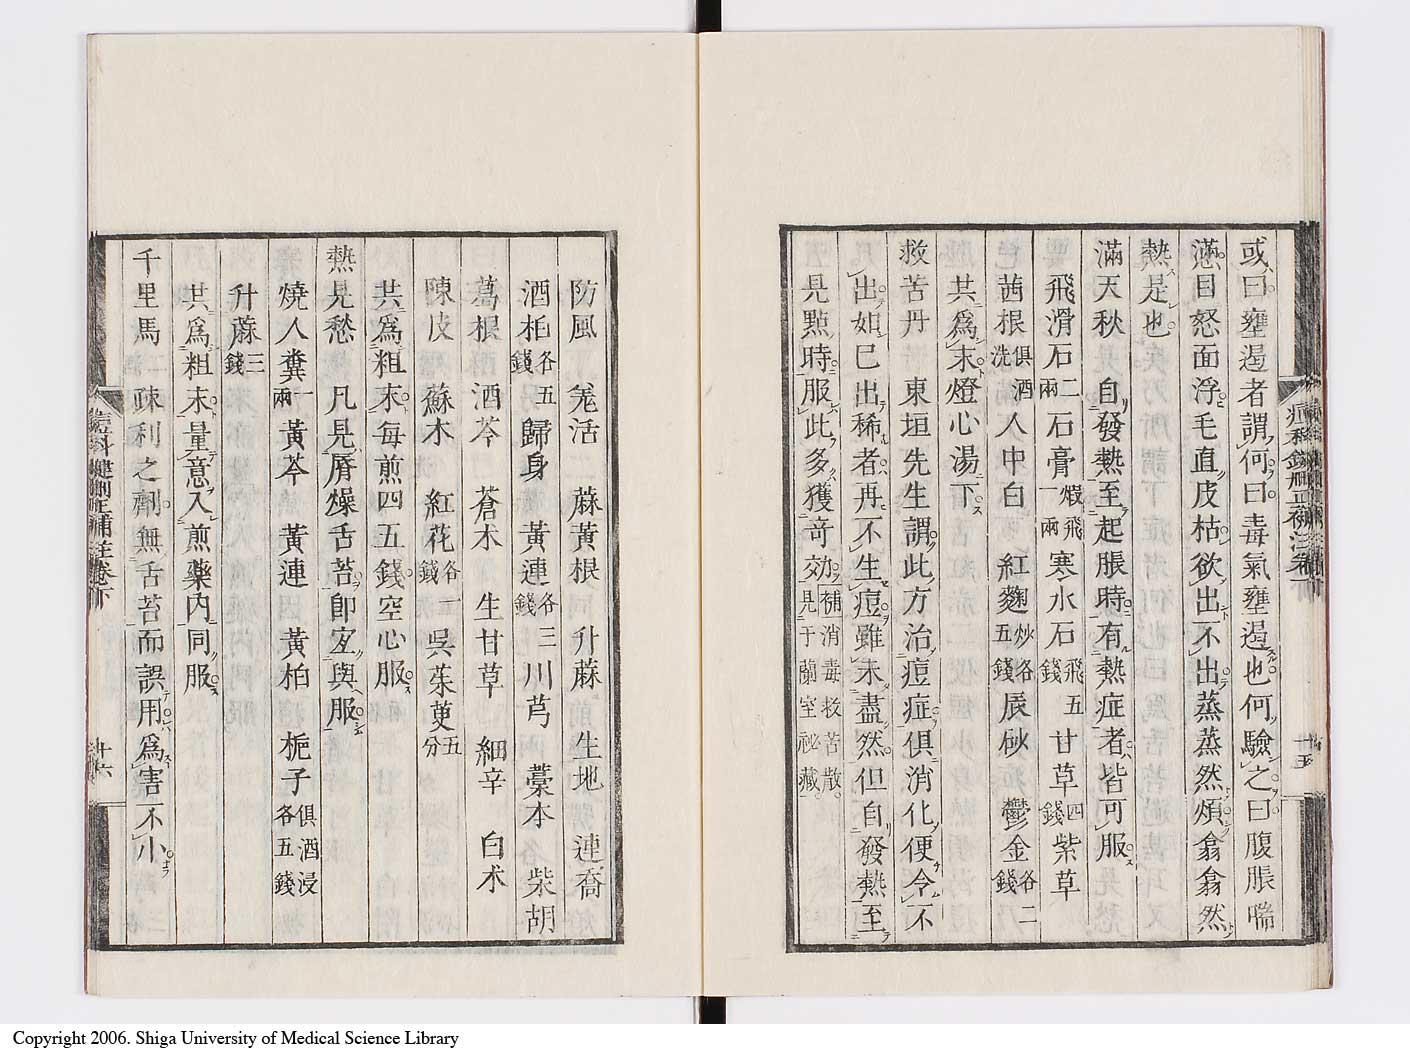 或曰壅遏者謂何曰毒氣壅遏也何驗之曰腹脹喘
懣目怒面浮毛直皮枯欲出不出蒸蒸然煩翕翕然
熱是也
滿天秋 自發熱至起脹時有熱症者皆可服
飛滑石二兩 石膏煆飛一兩 寒水石飛五錢 甘草四錢 紫草
茜根俱酒洗 人中白 紅麴炒各五錢 辰砂 鬱金各二錢
共爲末燈心湯下
救苦丹 東垣先生謂此方治痘症俱消化便令不
出如已出稀者再不生痘雖未盡然但自發熱至
見點時服此多獲奇効補消毒救苦散見于蘭室祕藏
十五
防風 羌活 蔴黃根 升蔴 生地 連喬
酒栢各五錢 歸身 黃連各三錢 川芎 藁本 柴胡
葛根 酒芩 蒼术 生甘草 細辛 白术
陳皮 蘇木 紅花各一錢 吳茱萸五分
共爲粗末每煎四五錢空心服
熱見愁 凡見脣燥舌苔卽宜與服
燒人糞一兩 黃芩 黃連 黃柏 梔子俱酒浸各五錢
升蔴三錢
共爲粗末量意入煎藥内同服
千里馬 疎利之劑無舌苔而誤用爲害不小
痘科鍵刪正補註卷下 十六
Copyright 2006. Shiga University of Medical Science Library